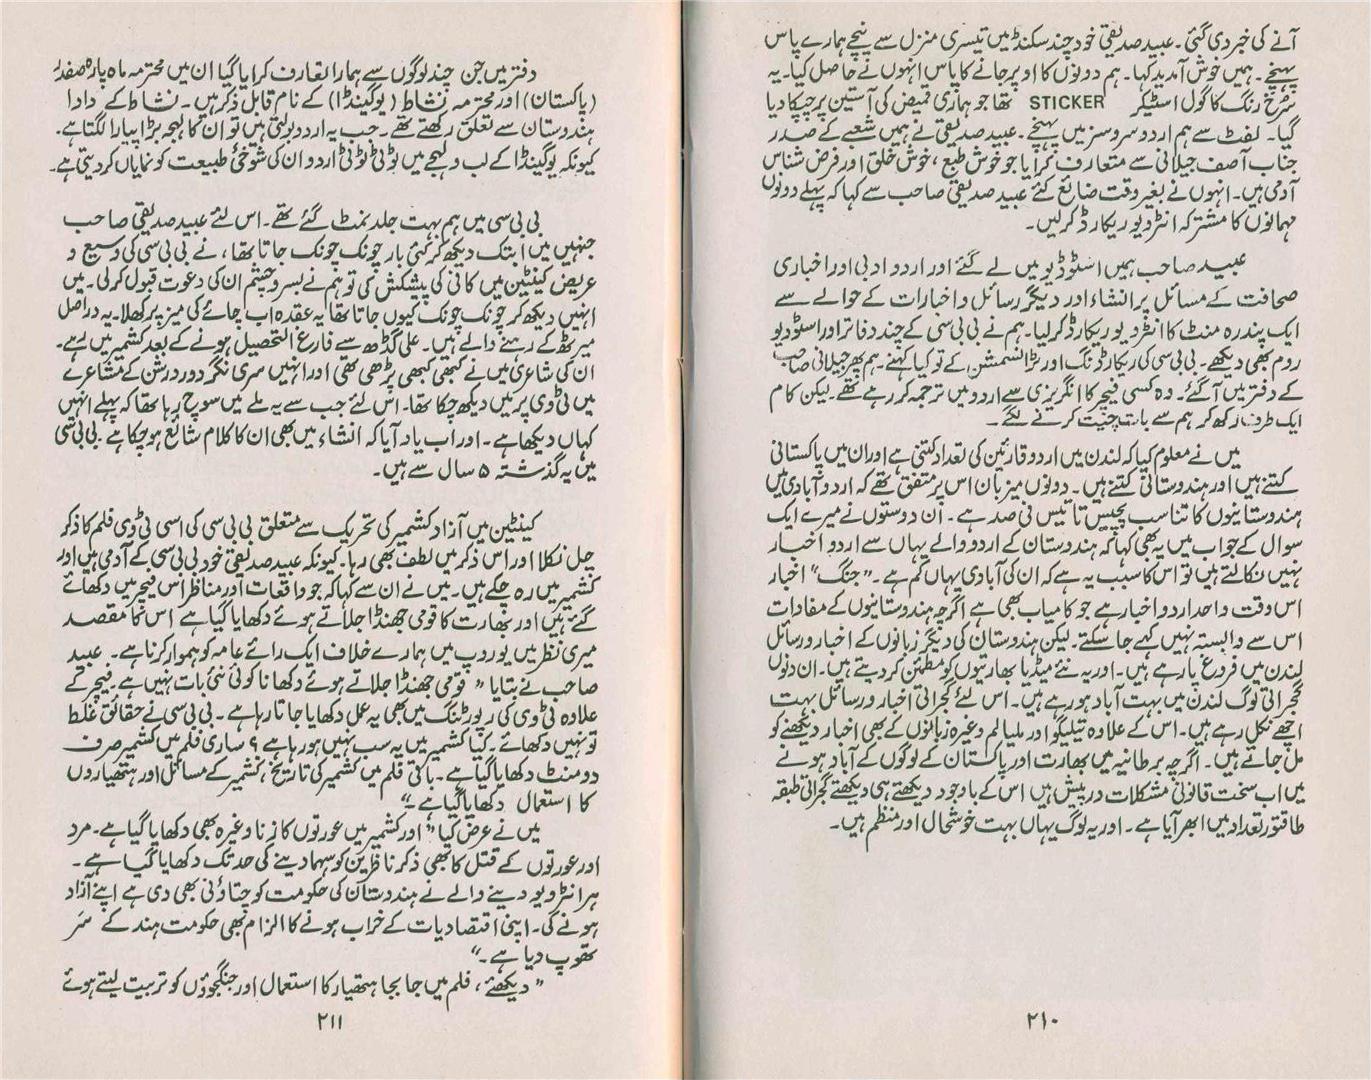 آنے کی خبر دی گئی۔ عبید صدیقی خود چند سکنڈ میں تیسری منزل سے نیچے ہمارے پاس
پہنچے۔ ہمیں خوش آمدید کہا۔ ہم دونوں کا اوپر جانے کا پاس انہوں نے حاصل کیا۔ یہ
سُرخ رنگ کا گول اسٹیکر STICKER تھا جو ہماری قمیض کی آستین پر چپکا دیا
گیا۔ لفٹ سے ہم اردو سروسز میں پہنچے۔ عبید صدیقی نے ہمیں شعبے کے صدر
جناب آصف جیلانی سے متعارف کرایا جو خوش طبع، خوش خلق اور فرض شناس
آدمی ہیں۔ انہوں نے بغیر وقت ضائع کئے عبید صدیقی صاحب سے کہا کہ پہلے دونوں
مہمانوں کا مشترکہ انٹرویو ریکارڈ کرلیں۔
عبید صاحب ہمیں اسٹوڈیو میں لے گئے اور اردو ادبی اور اخباری
صحافت کے مسائل پر انشاء اور دیگر رسائل و اخبارات کے حوالے سے
ایک پندرہ منٹ کا انٹرویو ریکارڈ کرلیا۔ ہم نے بی بی سی کے چند دفاتر اور اسٹوڈیو
روم بھی دیکھے۔ بی بی سی کی ریکارڈنگ اور ٹرانسمشن کے تو کیا کہنے۔ ہم پھر جیلانی صاحب
کے دفتر میں آگئے۔ وہ کسی فیچر کا انگریزی سے اردو میں ترجمہ کر رہے تھے۔ لیکن کام
ایک طرف رکھ کر ہم سے بات چیت کرنے لگے۔
میں نے معلوم کیا کہ لندن میں اردو قارئین کی تعداد کتنی ہے اور ان میں پاکستانی
کتنے ہیں اور ہندوستانی کتنے ہیں۔ دونوں میزبان اس پر متفق تھے کہ اردو آبادی میں
ہندوستانیوں کا تناسب پچیس تا تیس فی صد ہے۔ ان دوستوں نے میرے ایک
سوال کے جواب میں یہ بھی کہا کہ ہندوستان کے اردو والے یہاں سے اردو اخبار
نہیں نکالتے ہیں تو اس کا سبب یہ ہے کہ ان کی آبادی یہاں کم ہے۔ "جنگ" اخبار
اس وقت واحد اردو اخبار ہے جو کامیاب بھی ہے اگرچہ ہندوستانیوں کے مفادات
اس سے وابستہ نہیں کہے جا سکتے۔ لیکن ہندوستان کی دیگر زبانوں کے اخبار و رسائل
لندن میں فروغ پا رہے ہیں۔ اور یہ نئے میڈیا بھارتیوں کو مطمئن کر دیتے ہیں۔ ان دنوں
گجراتی لوگ لندن میں بہت آباد ہو رہے ہیں۔ اس لئے گجراتی اخبار و رسائل بہت
اچھے نکل رہے ہیں۔ اس کے علاوہ تیلیگو اور ملیالم وغیرہ زبانوں کے بھی اخبار دیکھنے کو
مل جاتے ہیں۔ اگرچہ برطانیہ میں بھارت اور پاکستان کے لوگوں کے آباد ہونے
میں اب سخت قانونی مشکلات درپیش ہیں اس کے باوجود دیکھتے ہی دیکھتے گجراتی طبقہ
طاقتور تعداد میں ابھر آیا ہے۔ اور یہ لوگ یہاں بہت خوشحال اور منظم ہیں۔
۲۱۰
دفتر میں جن چند لوگوں سے ہمارا تعارف کرایا گیا ان میں محترمہ ماہ پارہ صفدر
(پاکستان) اور محترمہ نشاط (یوگینڈا) کے نام قابل ذکر ہیں۔ نشاط کے دادا
ہندوستان سے تعلق رکھتے تھے۔ جب یہ اردو بولتی ہیں تو ان کا لہجہ بڑا پیارا لگتا ہے۔
کیونکہ یوگینڈا کے لب و لہجے میں ٹوٹی ٹوٹی اردو ان کی شوخئ طبیعت کو نمایاں کر دیتی ہے۔
بی بی سی میں ہم بہت جلد نمٹ گئے تھے۔ اس لئے عبید صدیقی صاحب
جنہیں میں ابتک دیکھ کر کئی بار چونک چونک جاتا تھا، نے بی بی سی کی وسیع و
عریض کینٹین میں کافی کی پیشکش کی تو ہم نے بسر و چشم ان کی دعوت قبول کرلی۔ میں
انہیں دیکھ کر چونک چونک کیوں جاتا تھا یہ عقدہ اب چائے کی میز پر کھلا۔ یہ دراصل
میرٹھ کے رہنے والے ہیں۔ علی گڈھ سے فارغ التحصیل ہونے کے بعد کشمیر میں رہے۔
ان کی شاعری میں نے کبھی کبھی پڑھی تھی اور انہیں سری نگر دور درشن کے مشاعرے
میں ٹی وی پر میں دیکھ چکا تھا۔ اس لئے جب سے یہ ملے میں سوچ رہا تھا کہ پہلے انہیں
کہاں دیکھا ہے۔ اور اب یاد آیا کہ انشاء میں بھی ان کا کلام شائع ہو چکا ہے۔ بی بی سی
میں یہ گذشتہ ۵ سال سے ہیں۔
کینٹین میں آزاد کشمیر کی تحریک سے متعلق بی بی سی کی اسی ٹی وی فلم کا ذکر
چل نکلا اور اس ذکر میں لطف بھی رہا۔ کیونکہ عبید صدیقی خود بی بی سی کے آدمی ہیں اور
کشمیر میں رہ چکے ہیں۔ میں نے ان سے کہا کہ جو واقعات اور مناظر اس فیچر میں دکھائے
گئے ہیں اور بھارت کا قومی جھنڈا جلاتے ہوئے دکھایا گیا ہے اس کا مقصد
میری نظر میں یوروپ میں ہمارے خلاف ایک رائے عامہ کو ہموار کرنا ہے۔ عبید
صاحب نے بتایا "قومی جھنڈا جلاتے ہوئے دکھانا کوئی نئی بات نہیں ہے۔ فیچر کے
علاوہ ٹی وی کی رپورٹنگ میں بھی یہ عمل دکھایا جاتا رہا ہے۔ بی بی سی نے حقائق غلط
تو نہیں دکھائے۔ کیا کشمیر میں یہ سب نہیں ہو رہا ہے؟ ساری فلم میں کشمیر صرف
دو منٹ دکھایا گیا ہے۔ باقی فلم میں کشمیر کی تاریخ، کشمیر کے مسائل اور ہتھیاروں
کا استعمال دکھایا گیا ہے"
میں نے عرض کیا "اور کشمیر میں عورتوں کا زنا وغیرہ بھی دکھایا گیا ہے۔ مرد
اور عورتوں کے قتل کا بھی ذکر ناظرین کو سہما دینے کی حد تک دکھایا گیا ہے۔
ہر انٹرویو دینے والے نے ہندوستان کی حکومت کو چتاؤنی بھی دی ہے اپنے آزاد
ہونے کی۔ اپنی اقتصادیات کے خراب ہونے کا الزام بھی حکومت ہند کے سَر
تھوپ دیا ہے۔"
"دیکھئے، فلم میں جا بجا ہتھیار کا استعمال اور جنگجوؤں کو تربیت لیتے ہوئے
۲۱۱